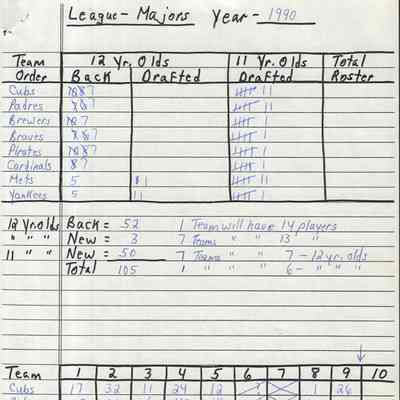 League - Majors Year - 1990
Team 12 Yr. Olds 11 Yr. Olds Total
Order Back Drafted Drafted Roster
Cubs 7 11
Padres 7 11
Brewers 7 1
Braves 7 1
Pirates 7 1
Cardinals 7 1
Mets 5 1 1
Yankees 5 11 1
12 Yr. olds Back = 52 1 Team will have 14 players
" " " New = 3 7 Teams " " 13 "
11 " " New = 50 7 Teams " " 7 - 12 yr. olds
Total 105 1 " " " 6 - " " "
Team 1 2 3 4 5 6 7 8 9 10
Cubs 17 32 11 24 12 1 26